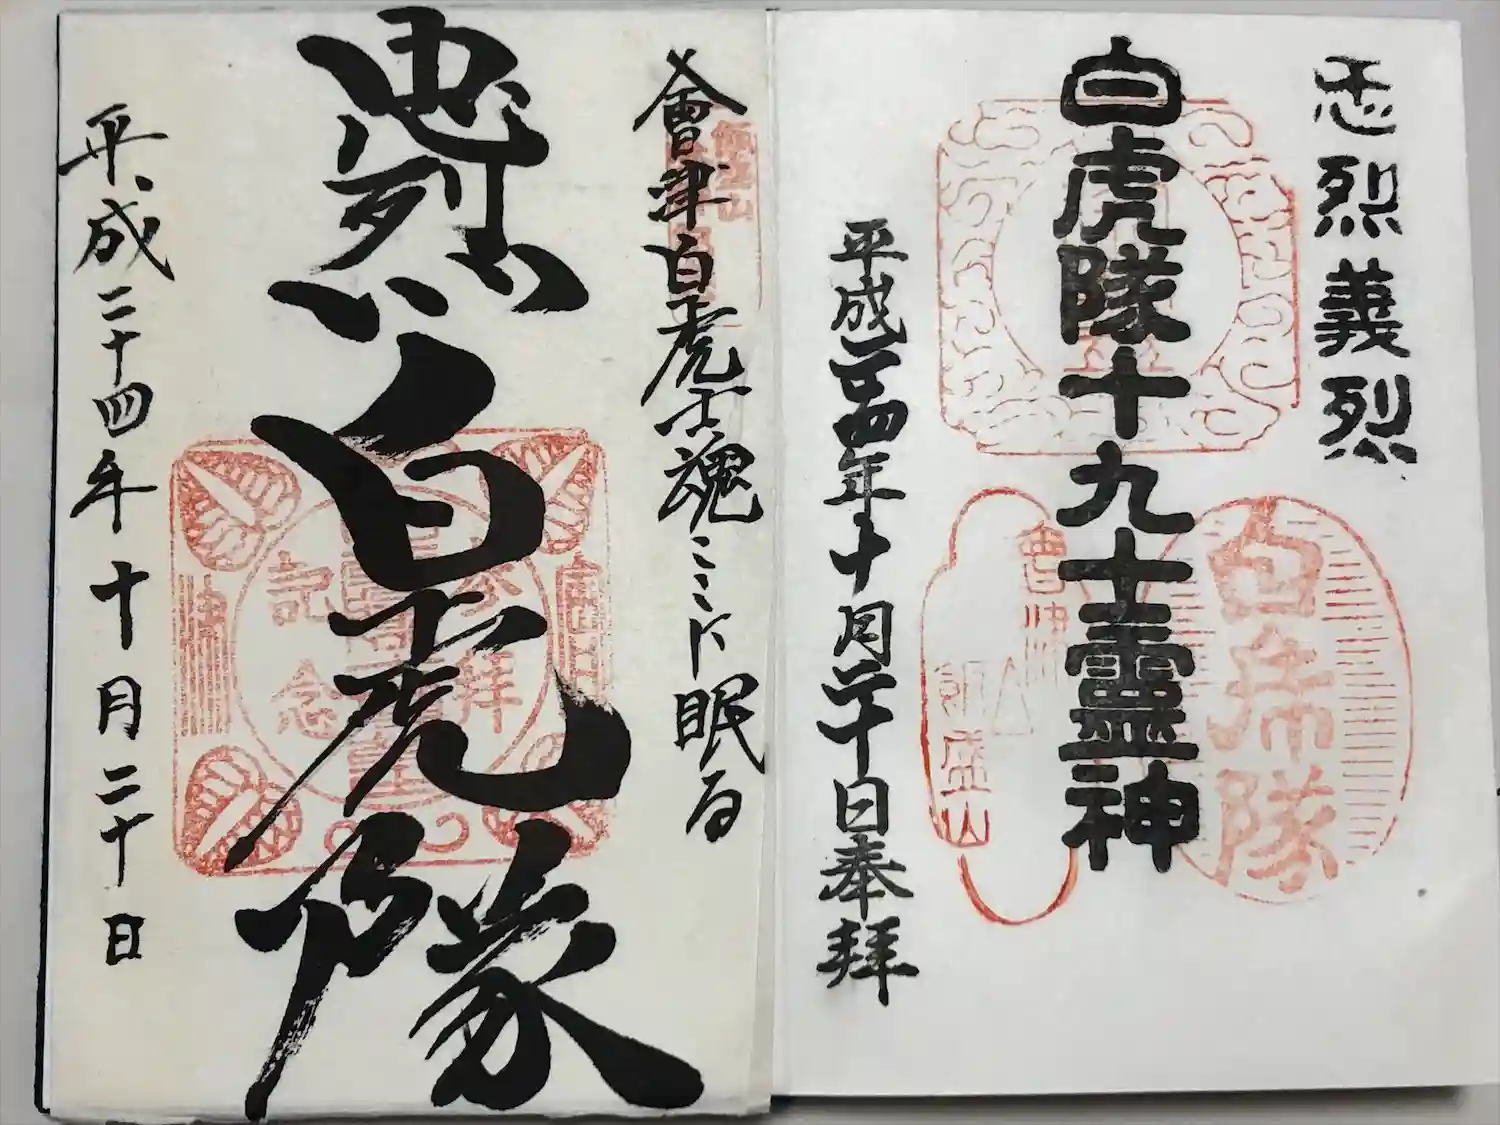 忠烈義烈
白虎隊十九士霊神
白虎隊
會津
飯盛山
平成二十四年十月二十日奉拝
會津白虎士魂ここに眠る
飯盛山
忠烈
白虎隊
参拝
記念
平成二十四年十月二十日